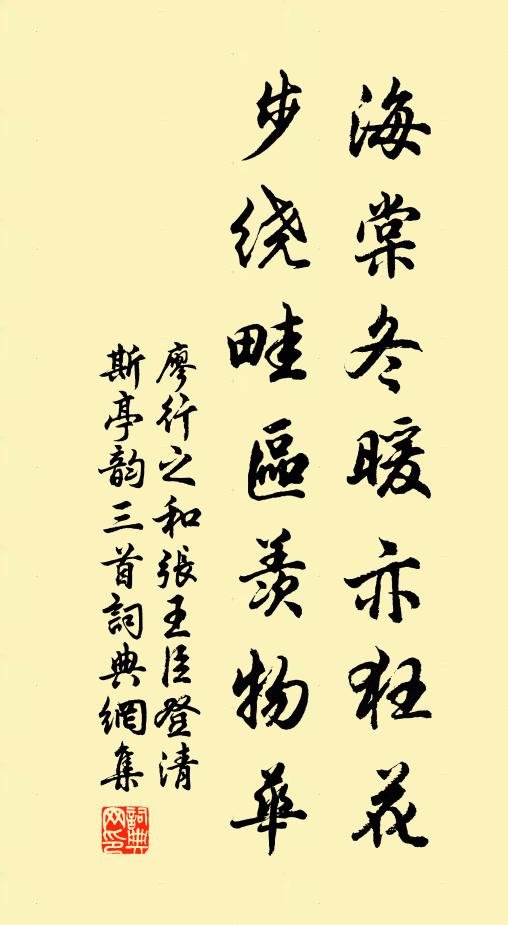 海棠冬暖亦狂花
步绕畦區羨物華
廖行之和張王臣登清
斯亭韵三首詞典網集
詞典網印